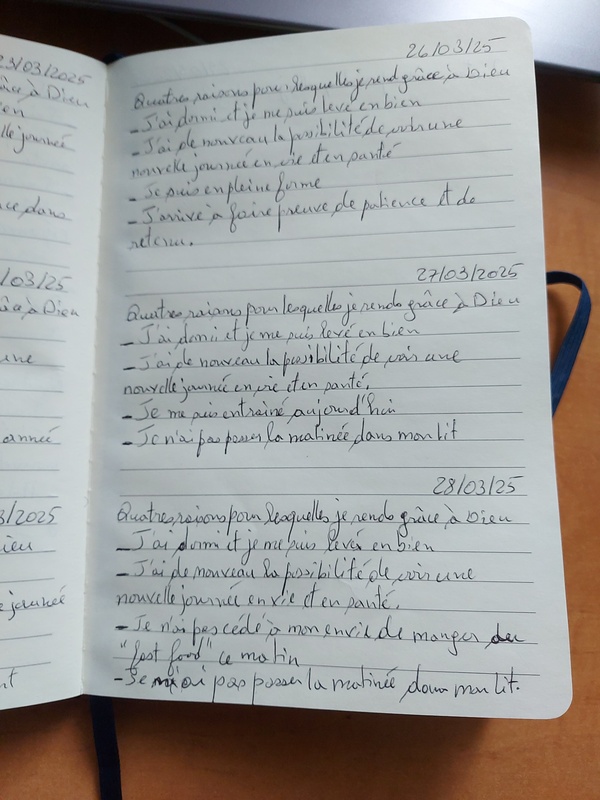 23/03/2025
âce à Dieu
en
lle journée
ce dans
/03/2025
âce à Dieu
une
année
3/2025
ieu
e journée
nt
26/03/25
Quatres raisons pour lesquelles je rend grâce à Dieu
- J'ai dormi et je me suis levé en bien
- J'ai de nouveau la possibilité de voir une
nouvelle journée en vie et en santé
- Je suis en pleine forme
- J'arrive à faire preuve de patience et de
retenu.
27/03/2025
Quatres raisons pour lesquelles je rends grâce à Dieu
- J'ai dormi et je me suis levé en bien
- J'ai de nouveau la possibilité de voir une
nouvelle journée en vie et en santé.
- Je me suis entraîné aujourd'hui
- Je n'ai pas passer la matinée dans mon lit
28/03/25
Quatres raisons pour lesquelles je rends grâce à Dieu
- J'ai dormi et je me suis levé en bien
- J'ai de nouveau la possibilité de voir une
nouvelle journée en vie et en santé.
- Je n'ai pas cédé à mon envie de manger du
"fast food" ce matin
- Je n'ai pas passer la matinée dans mon lit.